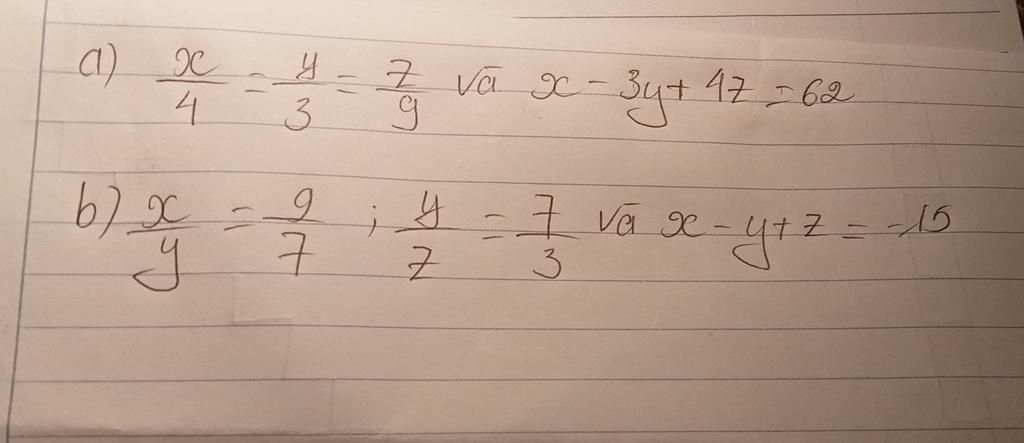 a) x/4 = y/3 = z/9 và x - 3y + 4z = 62
b) x/y = 9/7 ; y/z = 7/3 và x - y + z = -15